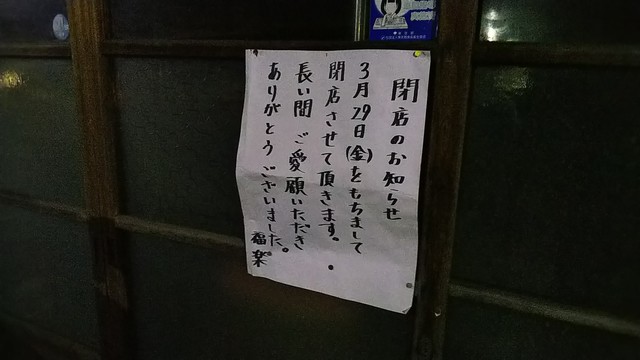 閉店のお知らせ
3月29日(金)をもちまして
閉店させて頂きます。
長い間 ご愛顧いただき
ありがとうございました。
福楽